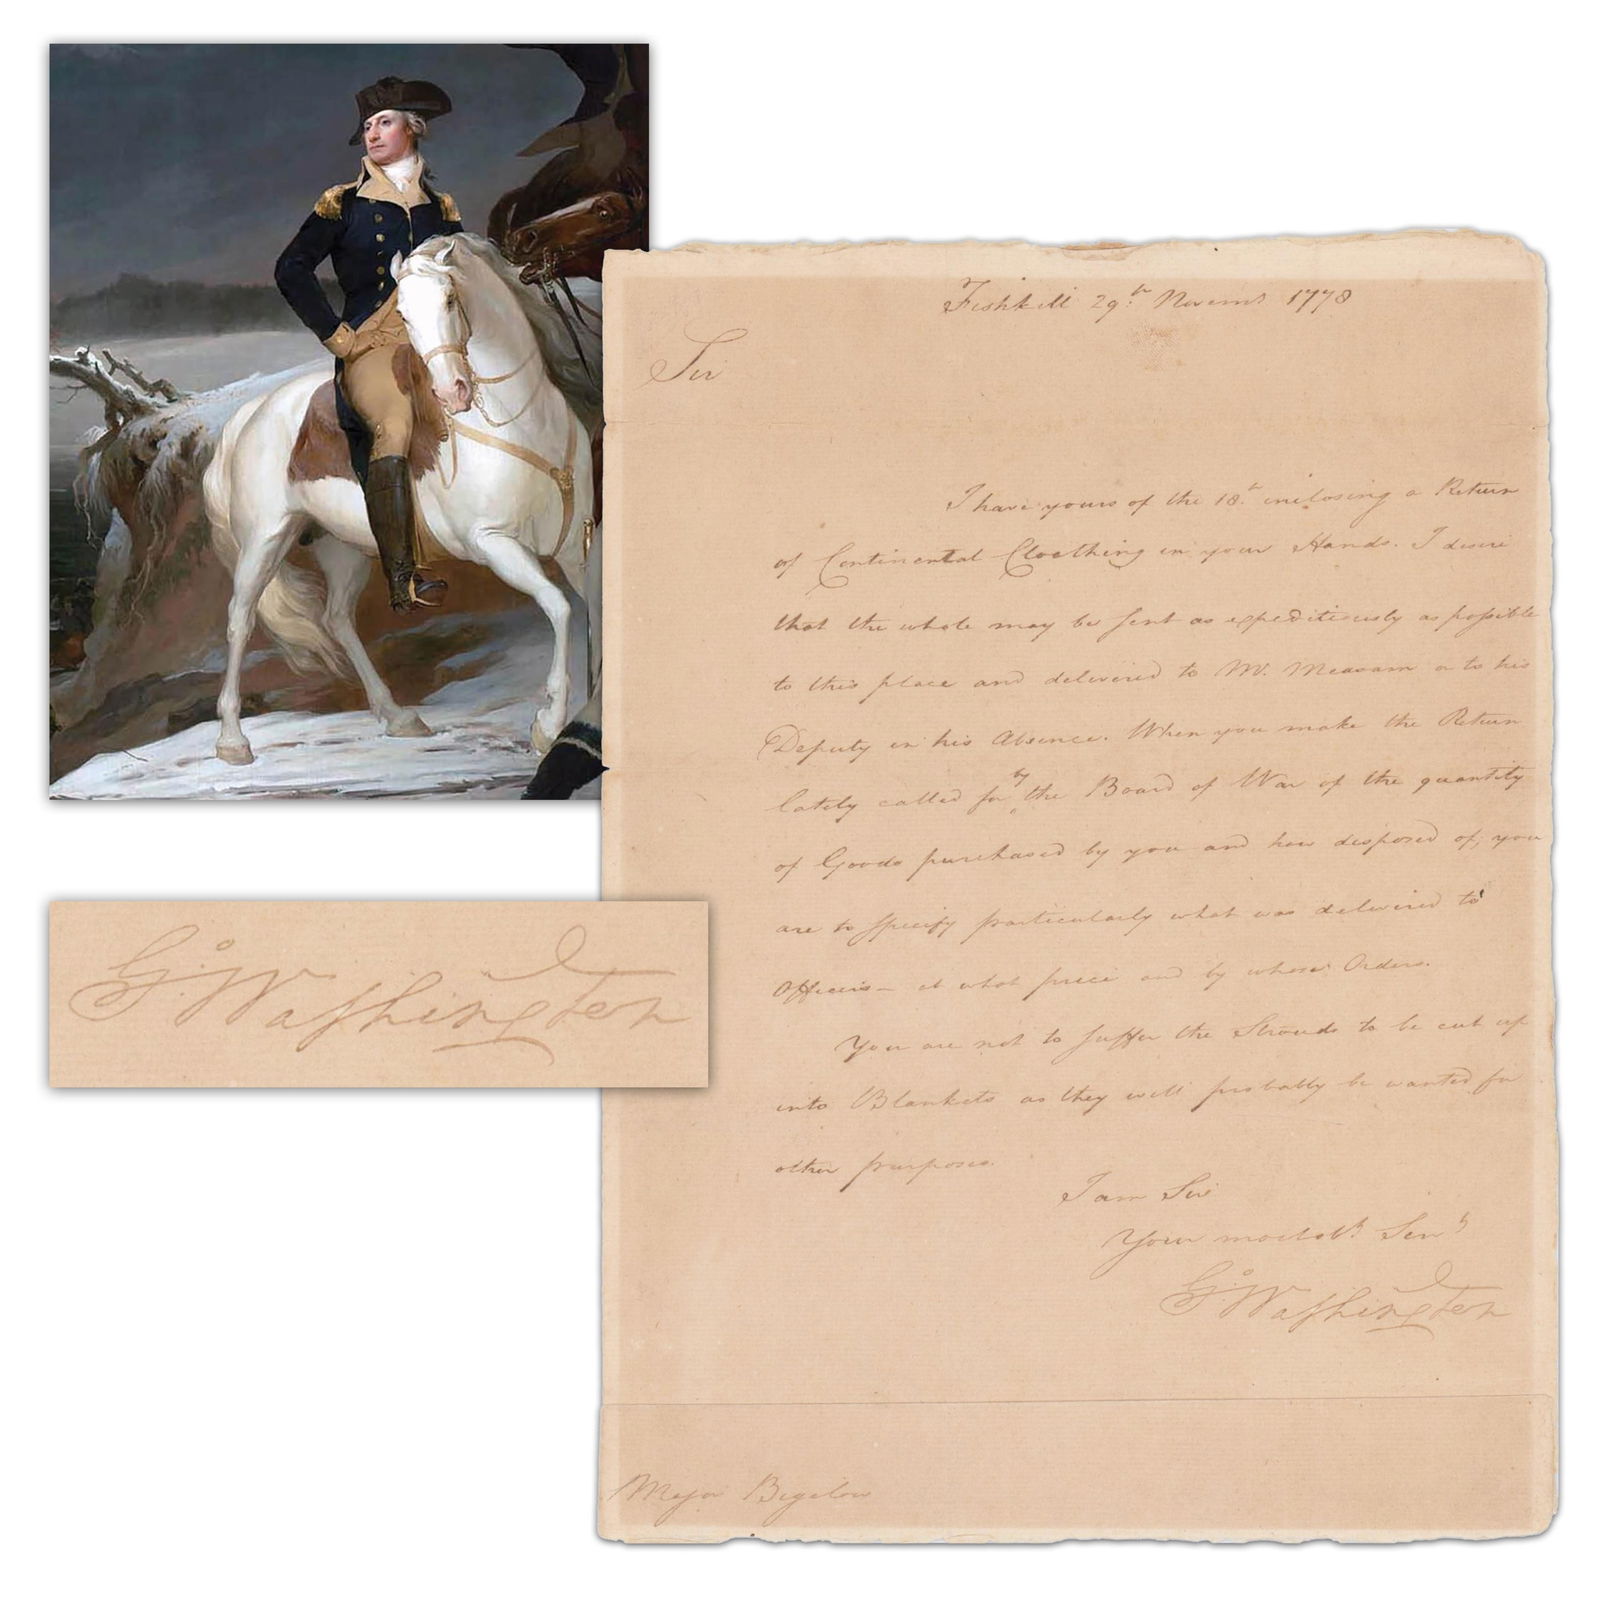 Fishkill 29.th Novemr 1778
Sir
I have yours of the 18.th inclosing a Return
of Continental Cloathing in your Hands. I desire
that the whole may be sent as expeditiously as possible
to this place and delivered to Mr. Measam or to his
Deputy in his Absence. When you make the Return
lately called for by the Board of War of the quantity
of Goods purchased by you and how disposed of; you
are to specify particularly what was delivered to
Officers - at what price and by whose Orders.
You are not to suffer the Strouds to be cut up
into Blankets as they will probably be wanted for
other purposes.
I am Sir
Your most obt Servt
Go: Washington
Major Bigelow
Go: Washington